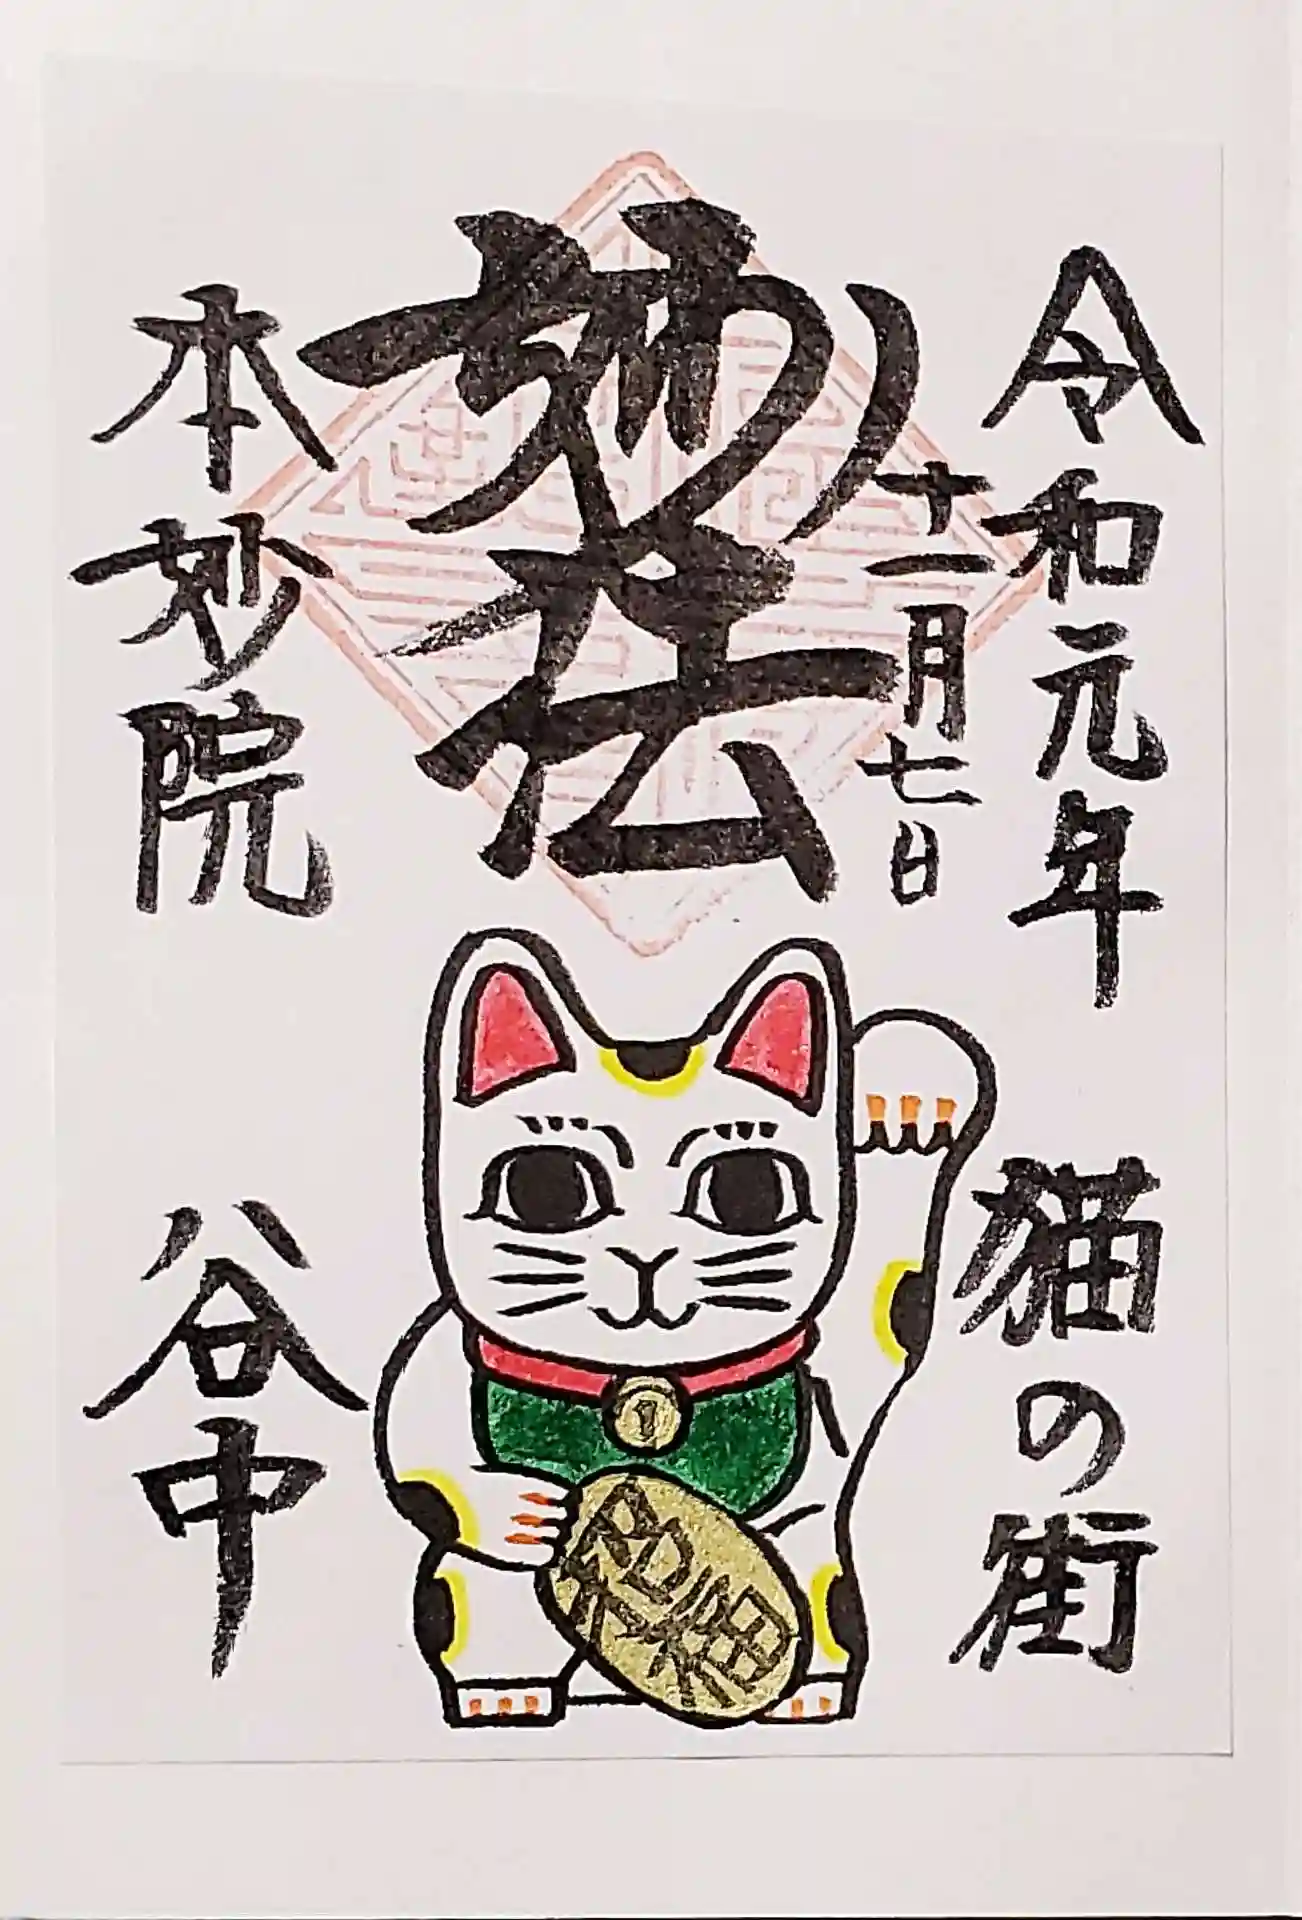 令和元年
十一月七日
猫の街
妙法
本妙院
谷中